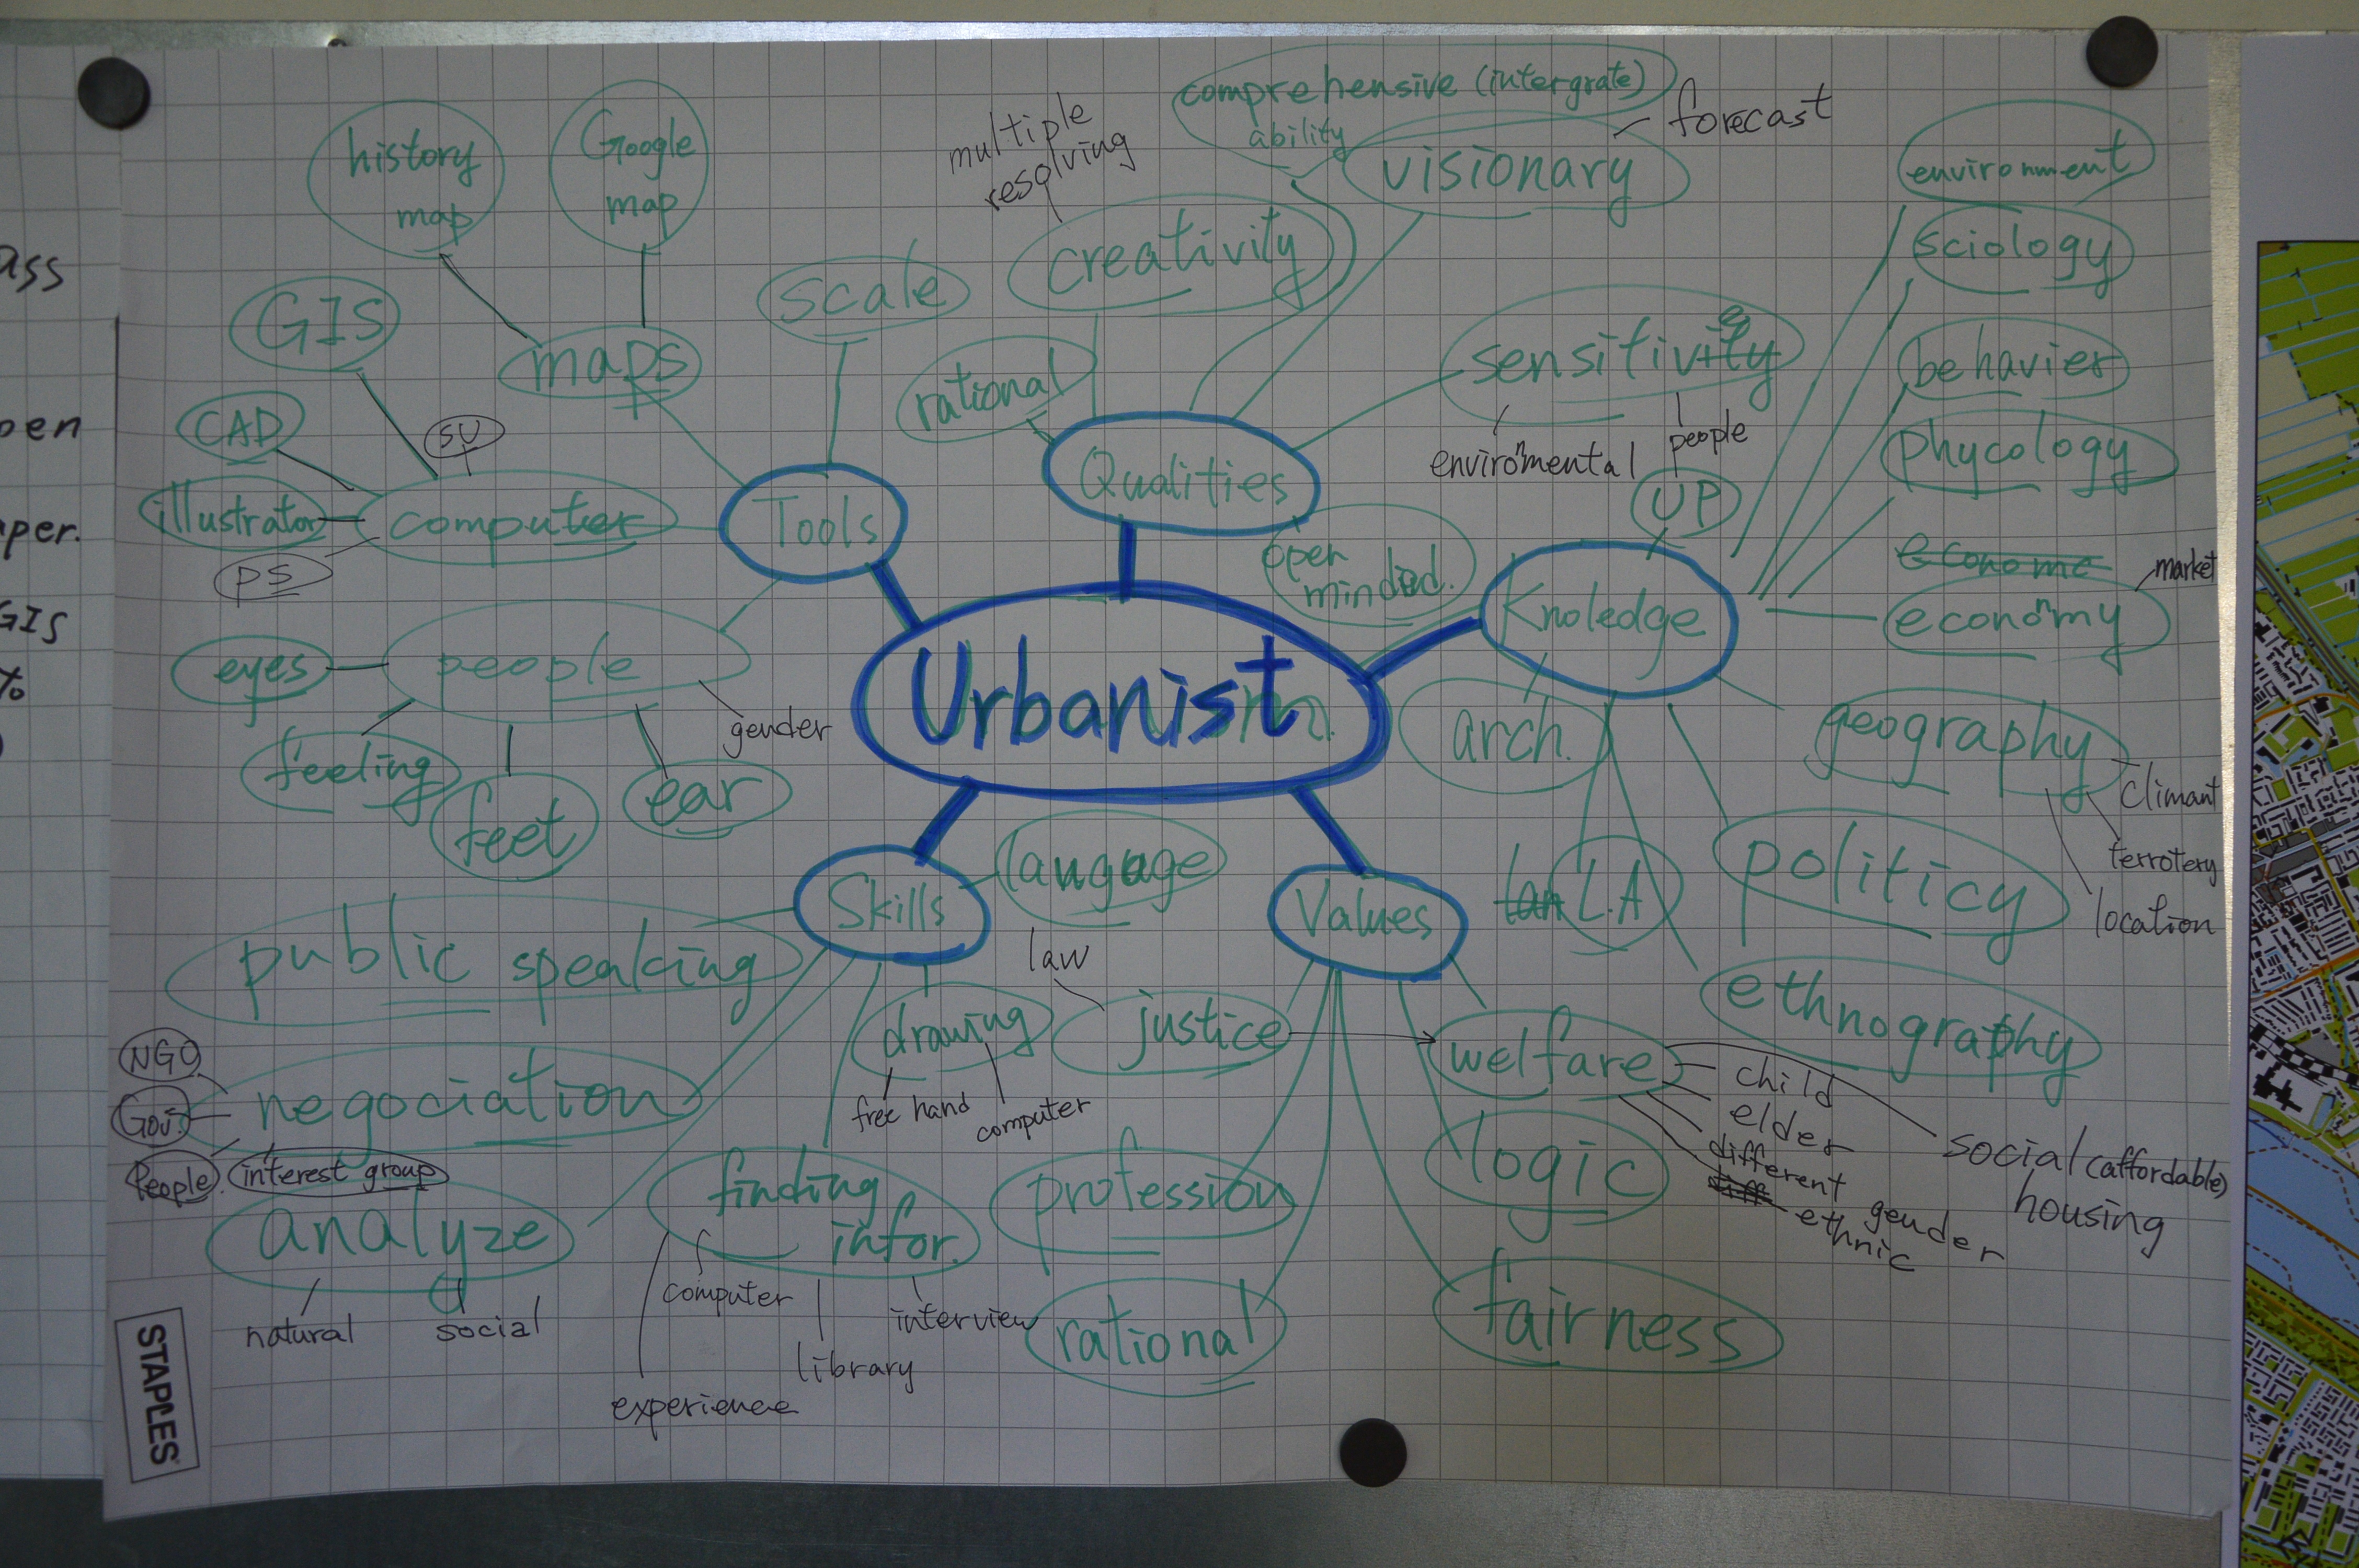 comprehensive (intergrate)
ability
multiple
resolving
forecast
visionary
history
map
Google
map
environment
sciology
creativity
scale
GIS
maps
rational
sensitivity
e
behavier
CAD
SU
Qualities
enviromental
n
people
phycology
illustrator
computer
Tools
UP
PS
open
minded.
econome
market
economy
n
Knoledge
eyes
people
gender
Urbanist
feeling
feet
ear
arch.
geography
climant
terrotery
location
Skills
langauge
Values
lan L.A
politicy
public speaking
law
drawing
free hand
computer
justice
welfare
ethnography
child
elder
different
diff
ethnic
gender
social (affordable)
housing
NGO
Gov.
People.
interest group
negociation
analyze
natural
social
finding
infor.
computer
experience
library
interview
profession
logic
rational
fairness
STAPLES
ass
pen
aper.
GIS
to
)